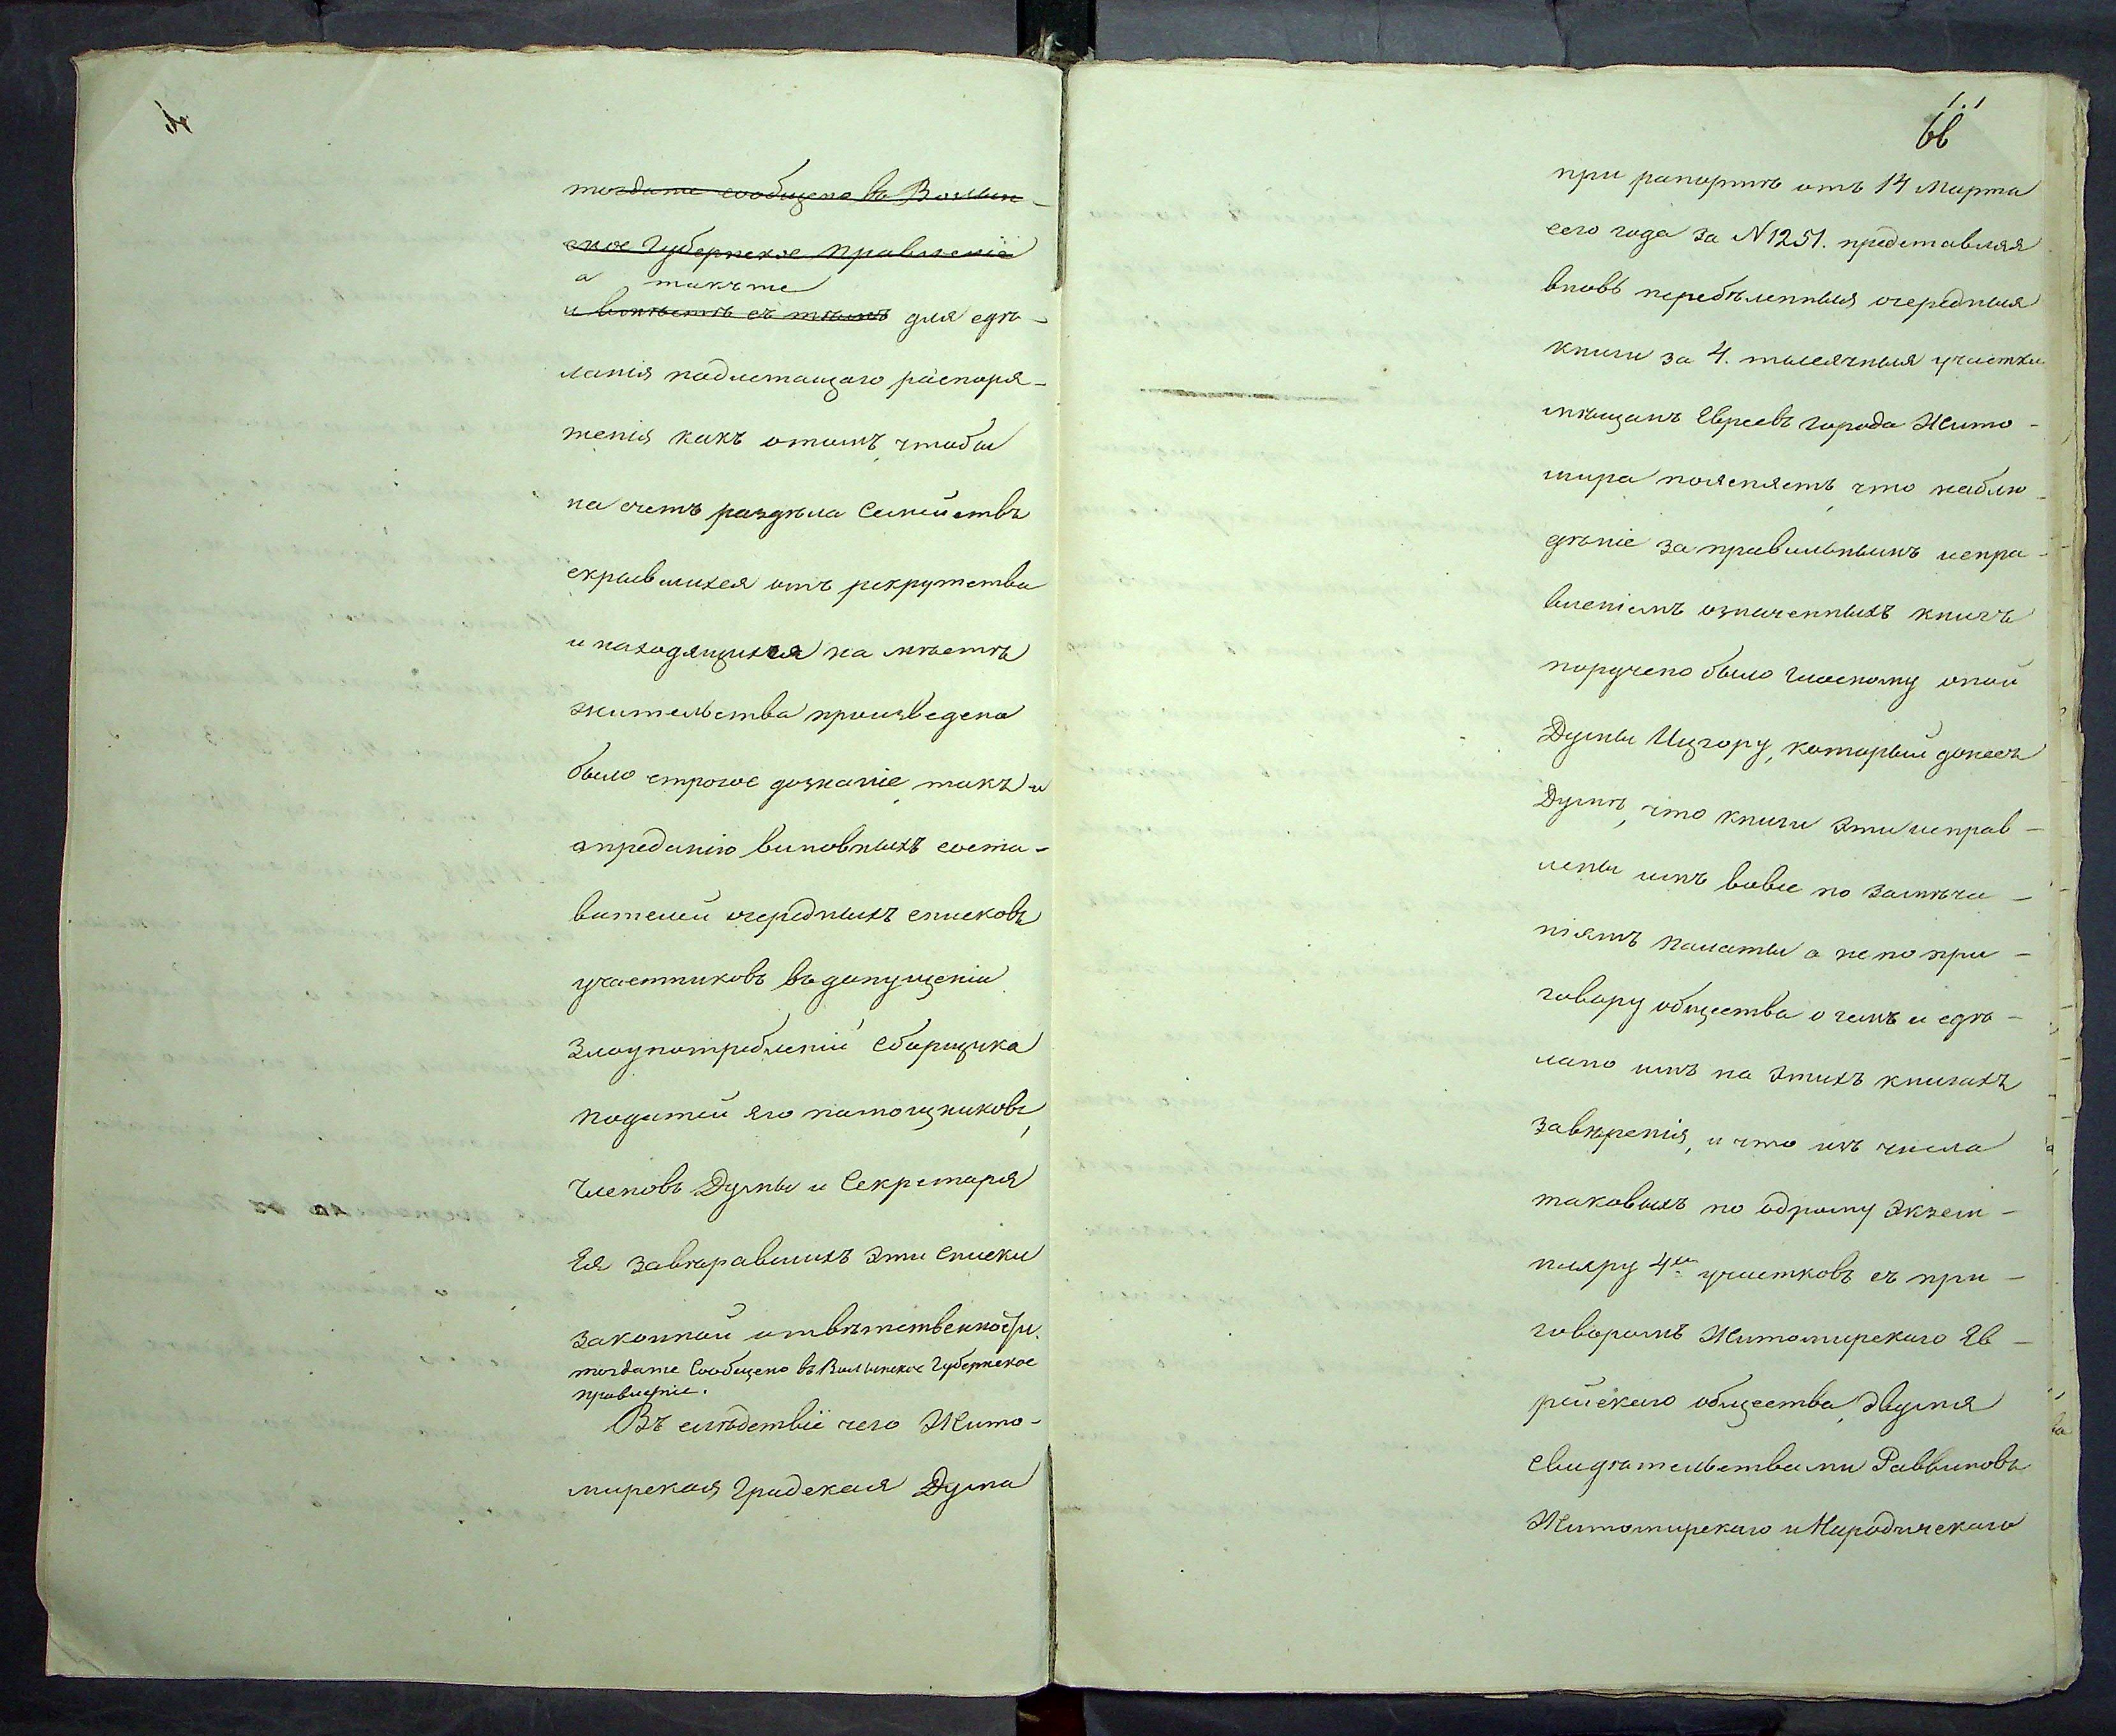 тогдаже сообщено въ Волын-
ское Губернское Правленіе
а такъже
и вмѣстѣ съ тѣмъ для сдѣ-
ланія надлежащаго распоря-
женія какъ отомъ, чтобы
на счетъ раздѣла Семействъ
скрывшихся отъ рекрутства
и находящихся на мѣстѣ
жительства произведено
было строгое дознаніе, такъ и
опреданію виновныхъ соста-
вителей очередныхъ списковъ
участниковъ въ допущеніи
злоупотребленій Сборщика
податей его помощниковъ,
Членовъ Думы и Секретаря
Ея завѣравшихъ эти списки
законной отвѣтственности.
тогдаже Сообщено въ Волынское Губернское
правленіе.
Въ слѣдствіе чего Жито-
мирская Градская Дума
68
при рапортѣ отъ 14 Марта
сего года за N 1251. представляя
вновь перебѣленныя очередныя
книги за 4. тысячныя участки
мѣщанъ Евреевъ города Жито-
мира поясняетъ, что наблю-
дѣніе за правильнымъ испра-
вленіемъ означенныхъ книгъ
поручено было Гласному оной
Думы Ицгору, который донесъ
Думѣ, что книги эти исправ-
лены имъ вовсе по замѣча-
ніямъ Палаты а не по при-
говору общества о чемъ и сдѣ-
лано имъ на этихъ книгахъ
завѣренія, и что изъ числа
таковыхъ по одному экзем-
пляру 4хъ участковъ съ при-
говоромъ Житомирскаго Ев-
рейскаго общества, двумя
свидѣтельствами Раввиновъ
Житомирскаго и Народичскаго